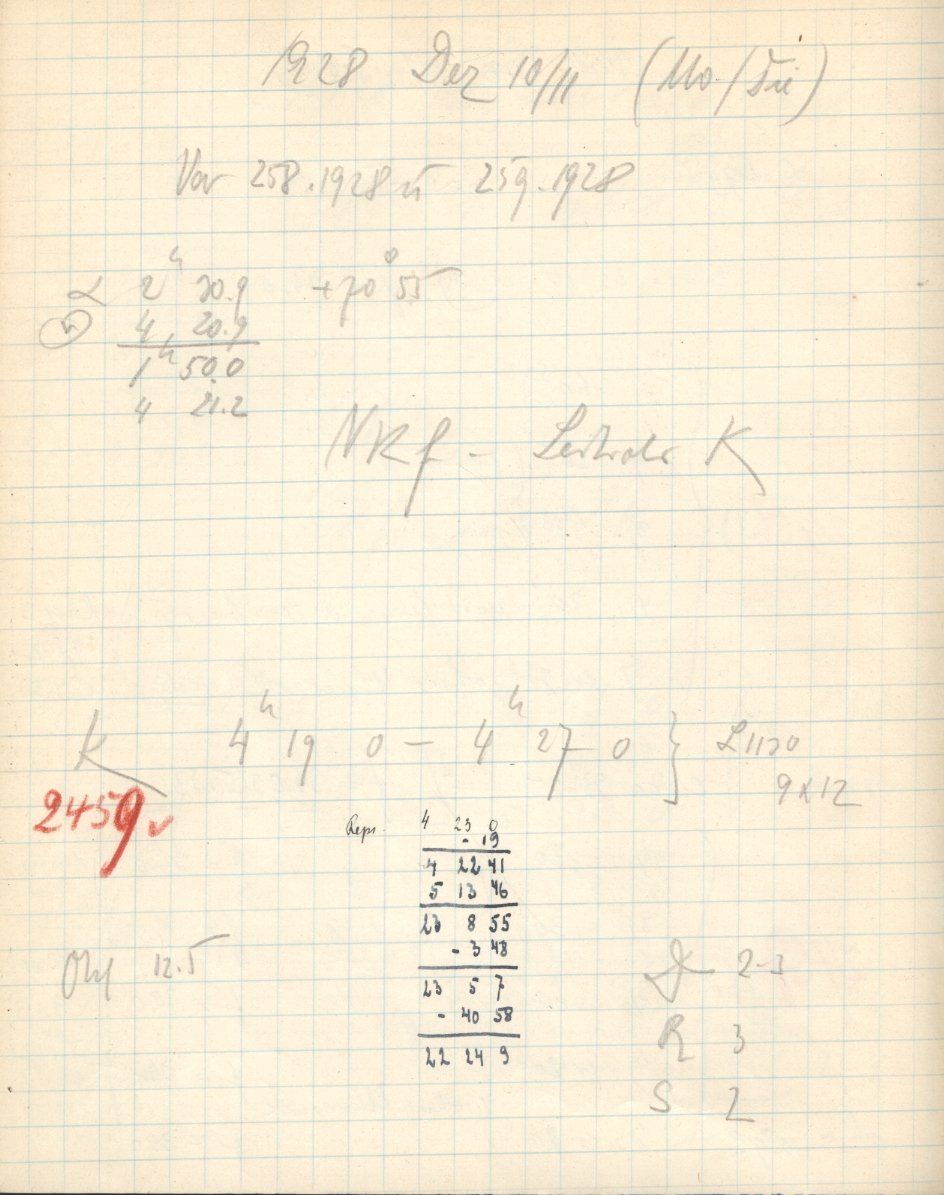 1928 Dez 10/11 (Mo/Die)
Var 258.1928 u 259.1928
α 2h 30.9 +70° 55
4 20.9
1h 50.0
4 21.2
NKf - K
K 4h 19 0 – 4h 27 0 } L 1130
9x12
2459 ✓
Reps. 4 23 0
- 19
4 22 41
5 13 46
23 8 55
- 3 48
23 5 7
- 40 58
22 24 9
Okl 12.5
D 2-3
R 3
S 2